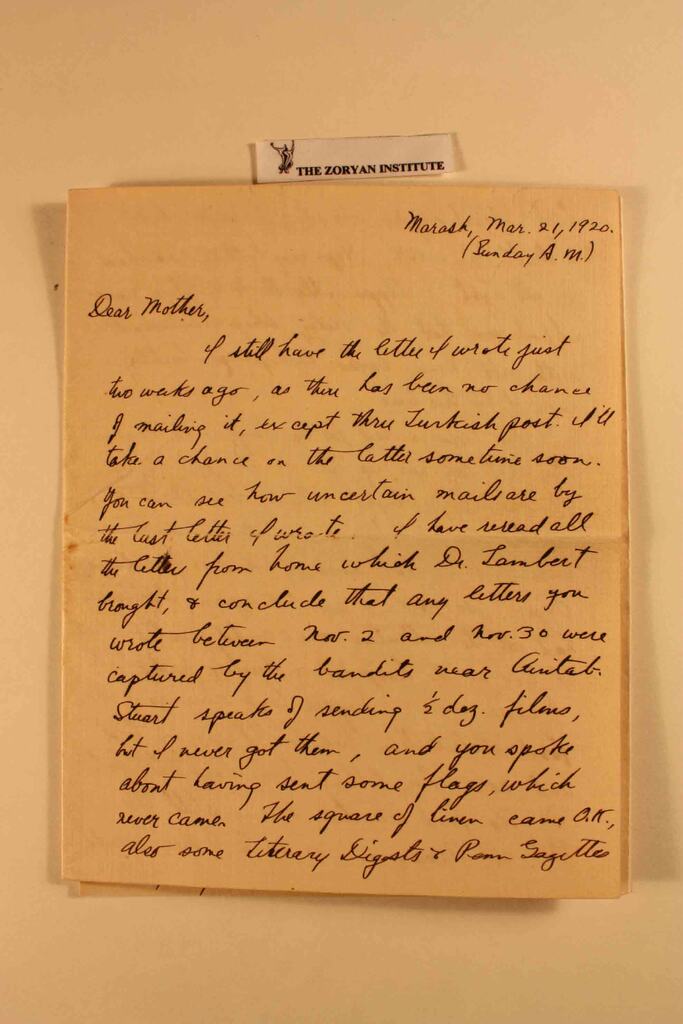 THE ZORYAN INSTITUTE
Marash, Mar. 21, 1920.
(Sunday A.M.)
Dear Mother,
I still have the letter I wrote just
two weeks ago, as there has been no chance
of mailing it, except thru Turkish post. I'll
take a chance on the latter sometime soon.
You can see how uncertain mails are by
the last letter I wrote. I have reread all
the letters from home which Dr. Lambert
brought, & conclude that any letters you
wrote between Nov. 2 and Nov. 30 were
captured by the bandits near Aintab.
Stuart speaks of sending ½ doz. films,
but I never got them, and you spoke
about having sent some flags, which
never came. The square of linen came O.K.,
also some Literary Digests & Penn Gazettes